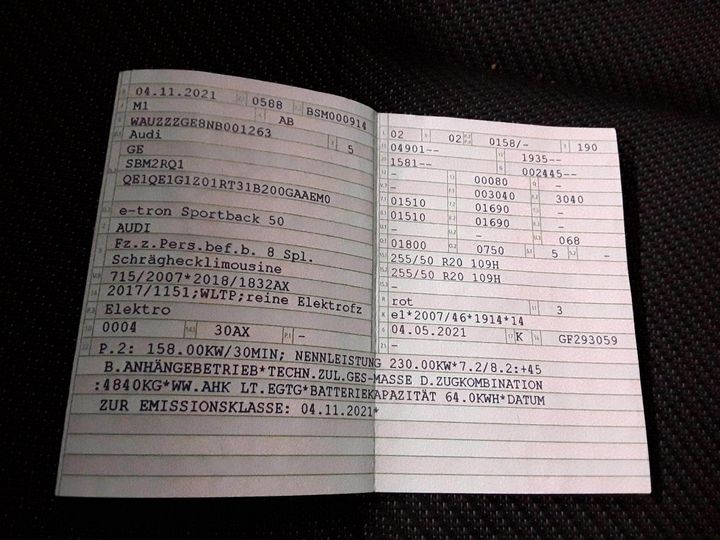 04.11.2021 0588 BSM000914
M1 AB
WAUZZZGE8NB001263
Audi 5
GE
SBM2RQ1
QE1QE1G1Z01RT31B200GAAEM0
e-tron Sportback 50
AUDI
Fz.z.Pers.bef.b. 8 Spl.
Schräghecklimousine
715/2007*2018/1832AX
2017/1151;WLTP;reine Elektrofz
Elektro
0004 30AX -
02 02 0158/- 190
04901-- 1935--
1581-- 002445--
- 00080 -
- 003040 3040
01510 01690 -
01510 01690 -
- - 068
01800 0750 5 -
255/50 R20 109H
255/50 R20 109H
-
rot 3
e1*2007/46*1914*14
04.05.2021 K GF293059
-
P.2: 158.00KW/30MIN; NENNLEISTUNG 230.00KW*7.2/8.2:+45
B.ANHÄNGEBETRIEB*TECHN.ZUL.GES-MASSE D.ZUGKOMBINATION
:4840KG*WW.AHK LT.EGTG*BATTERIEKAPAZITÄT 64.0KWH*DATUM
ZUR EMISSIONSKLASSE: 04.11.2021*